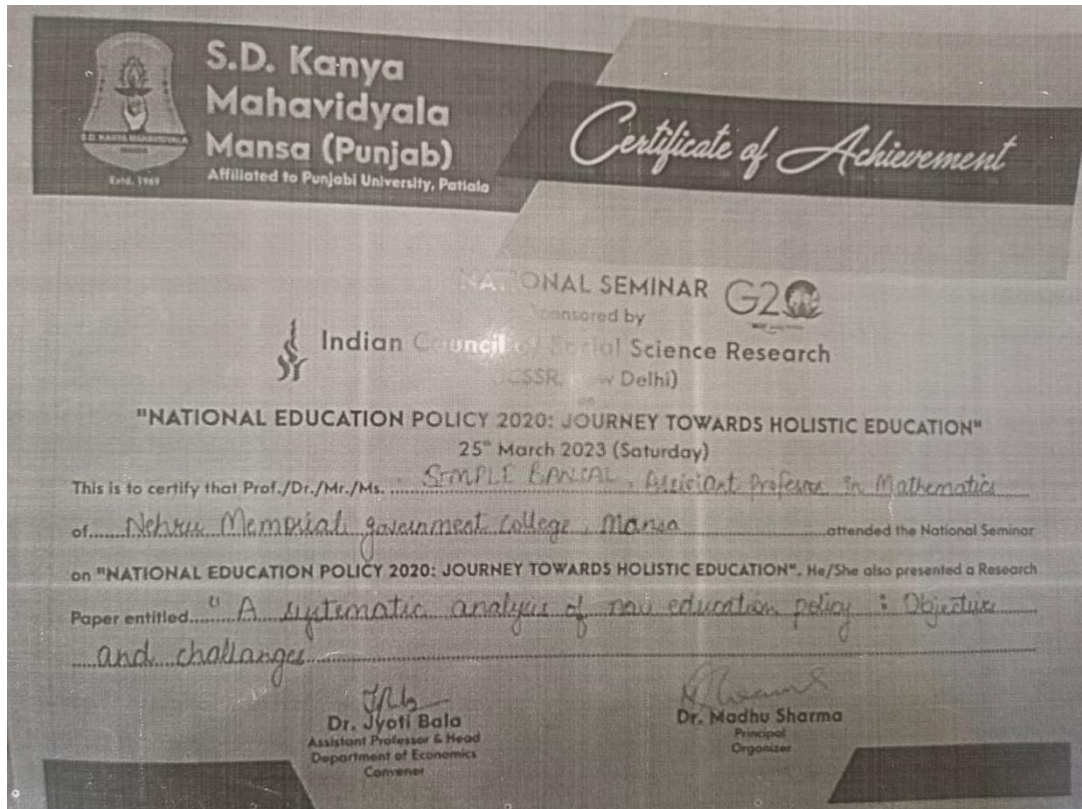 S.D. Kanya
Mahavidyala
Mansa (Punjab)
Affiliated to Punjabi University, Patiala
S.D. KANYA MAHAVIDYALA
MANSA
Estd. 1969
Certificate of Achievement
NATIONAL SEMINAR G20
sponsored by
Indian Council of Social Science Research
(ICSSR, New Delhi)
on
"NATIONAL EDUCATION POLICY 2020: JOURNEY TOWARDS HOLISTIC EDUCATION"
25th March 2023 (Saturday)
This is to certify that Prof./Dr./Mr./Ms. SIMPLE BANSAL, Assiciant Professor in Mathematics
of Nehru Memorial government College, Mansa attended the National Seminar
on "NATIONAL EDUCATION POLICY 2020: JOURNEY TOWARDS HOLISTIC EDUCATION". He/She also presented a Research
Paper entitled "A systematic analysis of new education policy : Objective
and challanges
Dr. Jyoti Bala
Assistant Professor & Head
Department of Economics
Convener
Dr. Madhu Sharma
Principal
Organizer